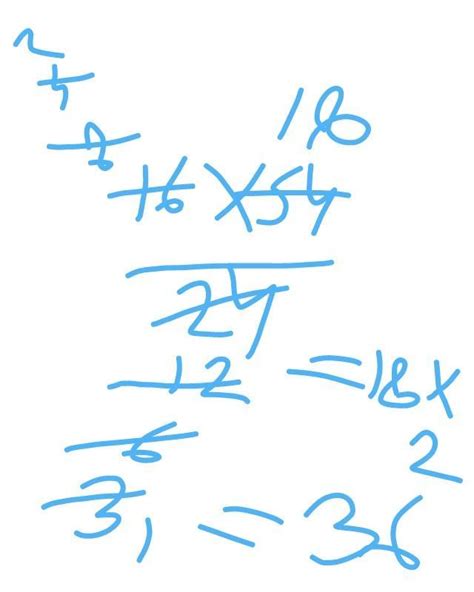 2
4
8 18
16 X 54
24
12 = 18 x
6 2
3 1 = 36